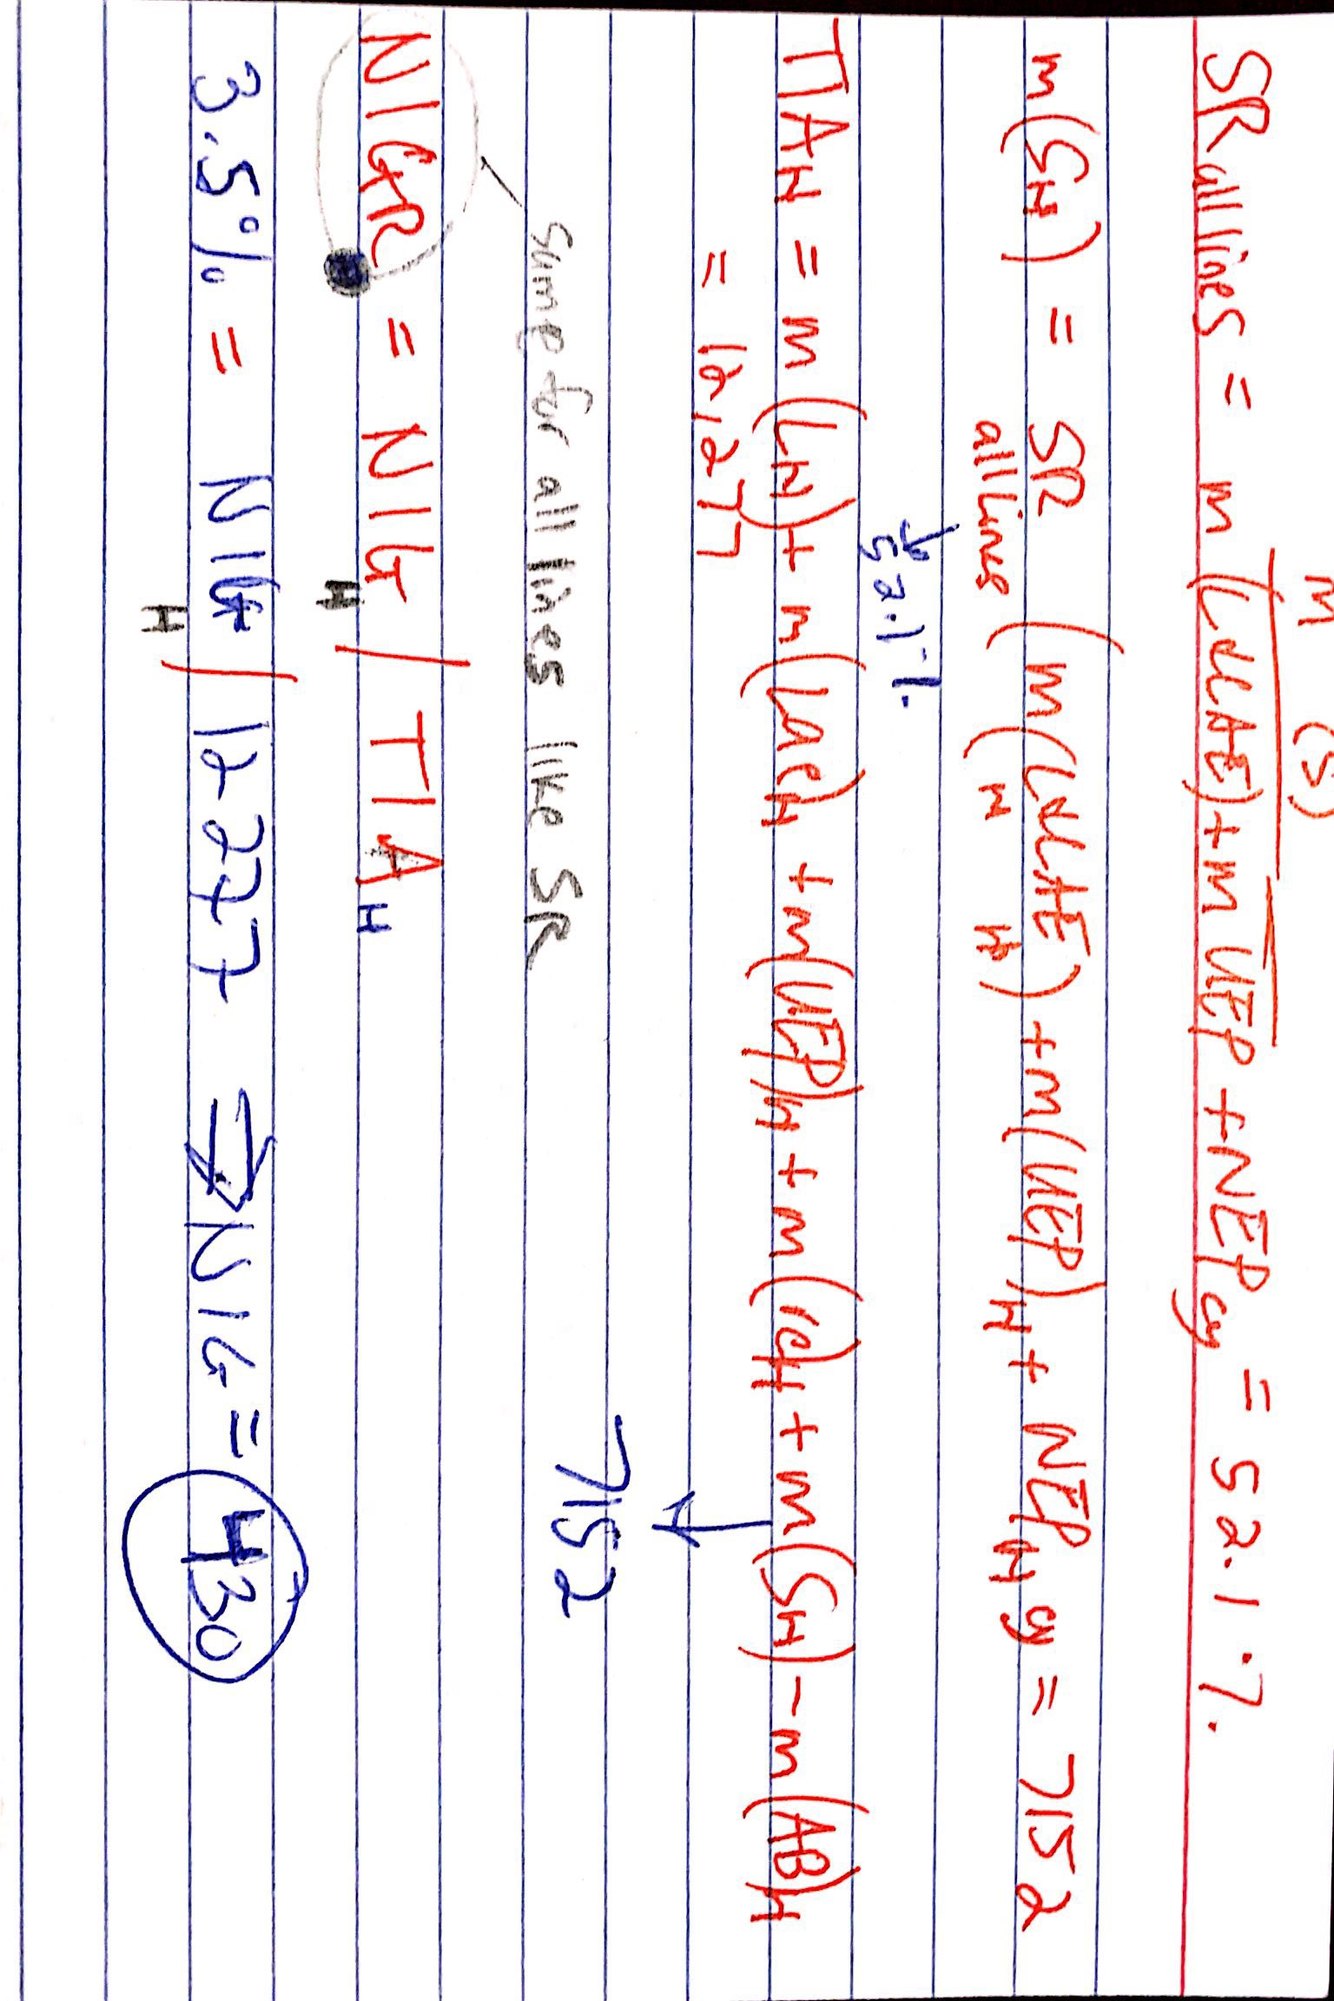 m (S)
SR all lines = m (L&LAE) + m UEP + NEP cy = 52.1%.
m(SH) = SR all Lines (m(L&LAE) + m(UEP)H + NEPH cy = 7152
H H
52.1%.
TIAH = m(LH) + m(LaeH + m(UEP)H + m(rc)H + m(SH) - m(AB)H
= 12,277
7152
same for all lines like SR
NIGR = NIG H / TIA H
3.5% = NIG H / 12277 ⇒ NIG = 430